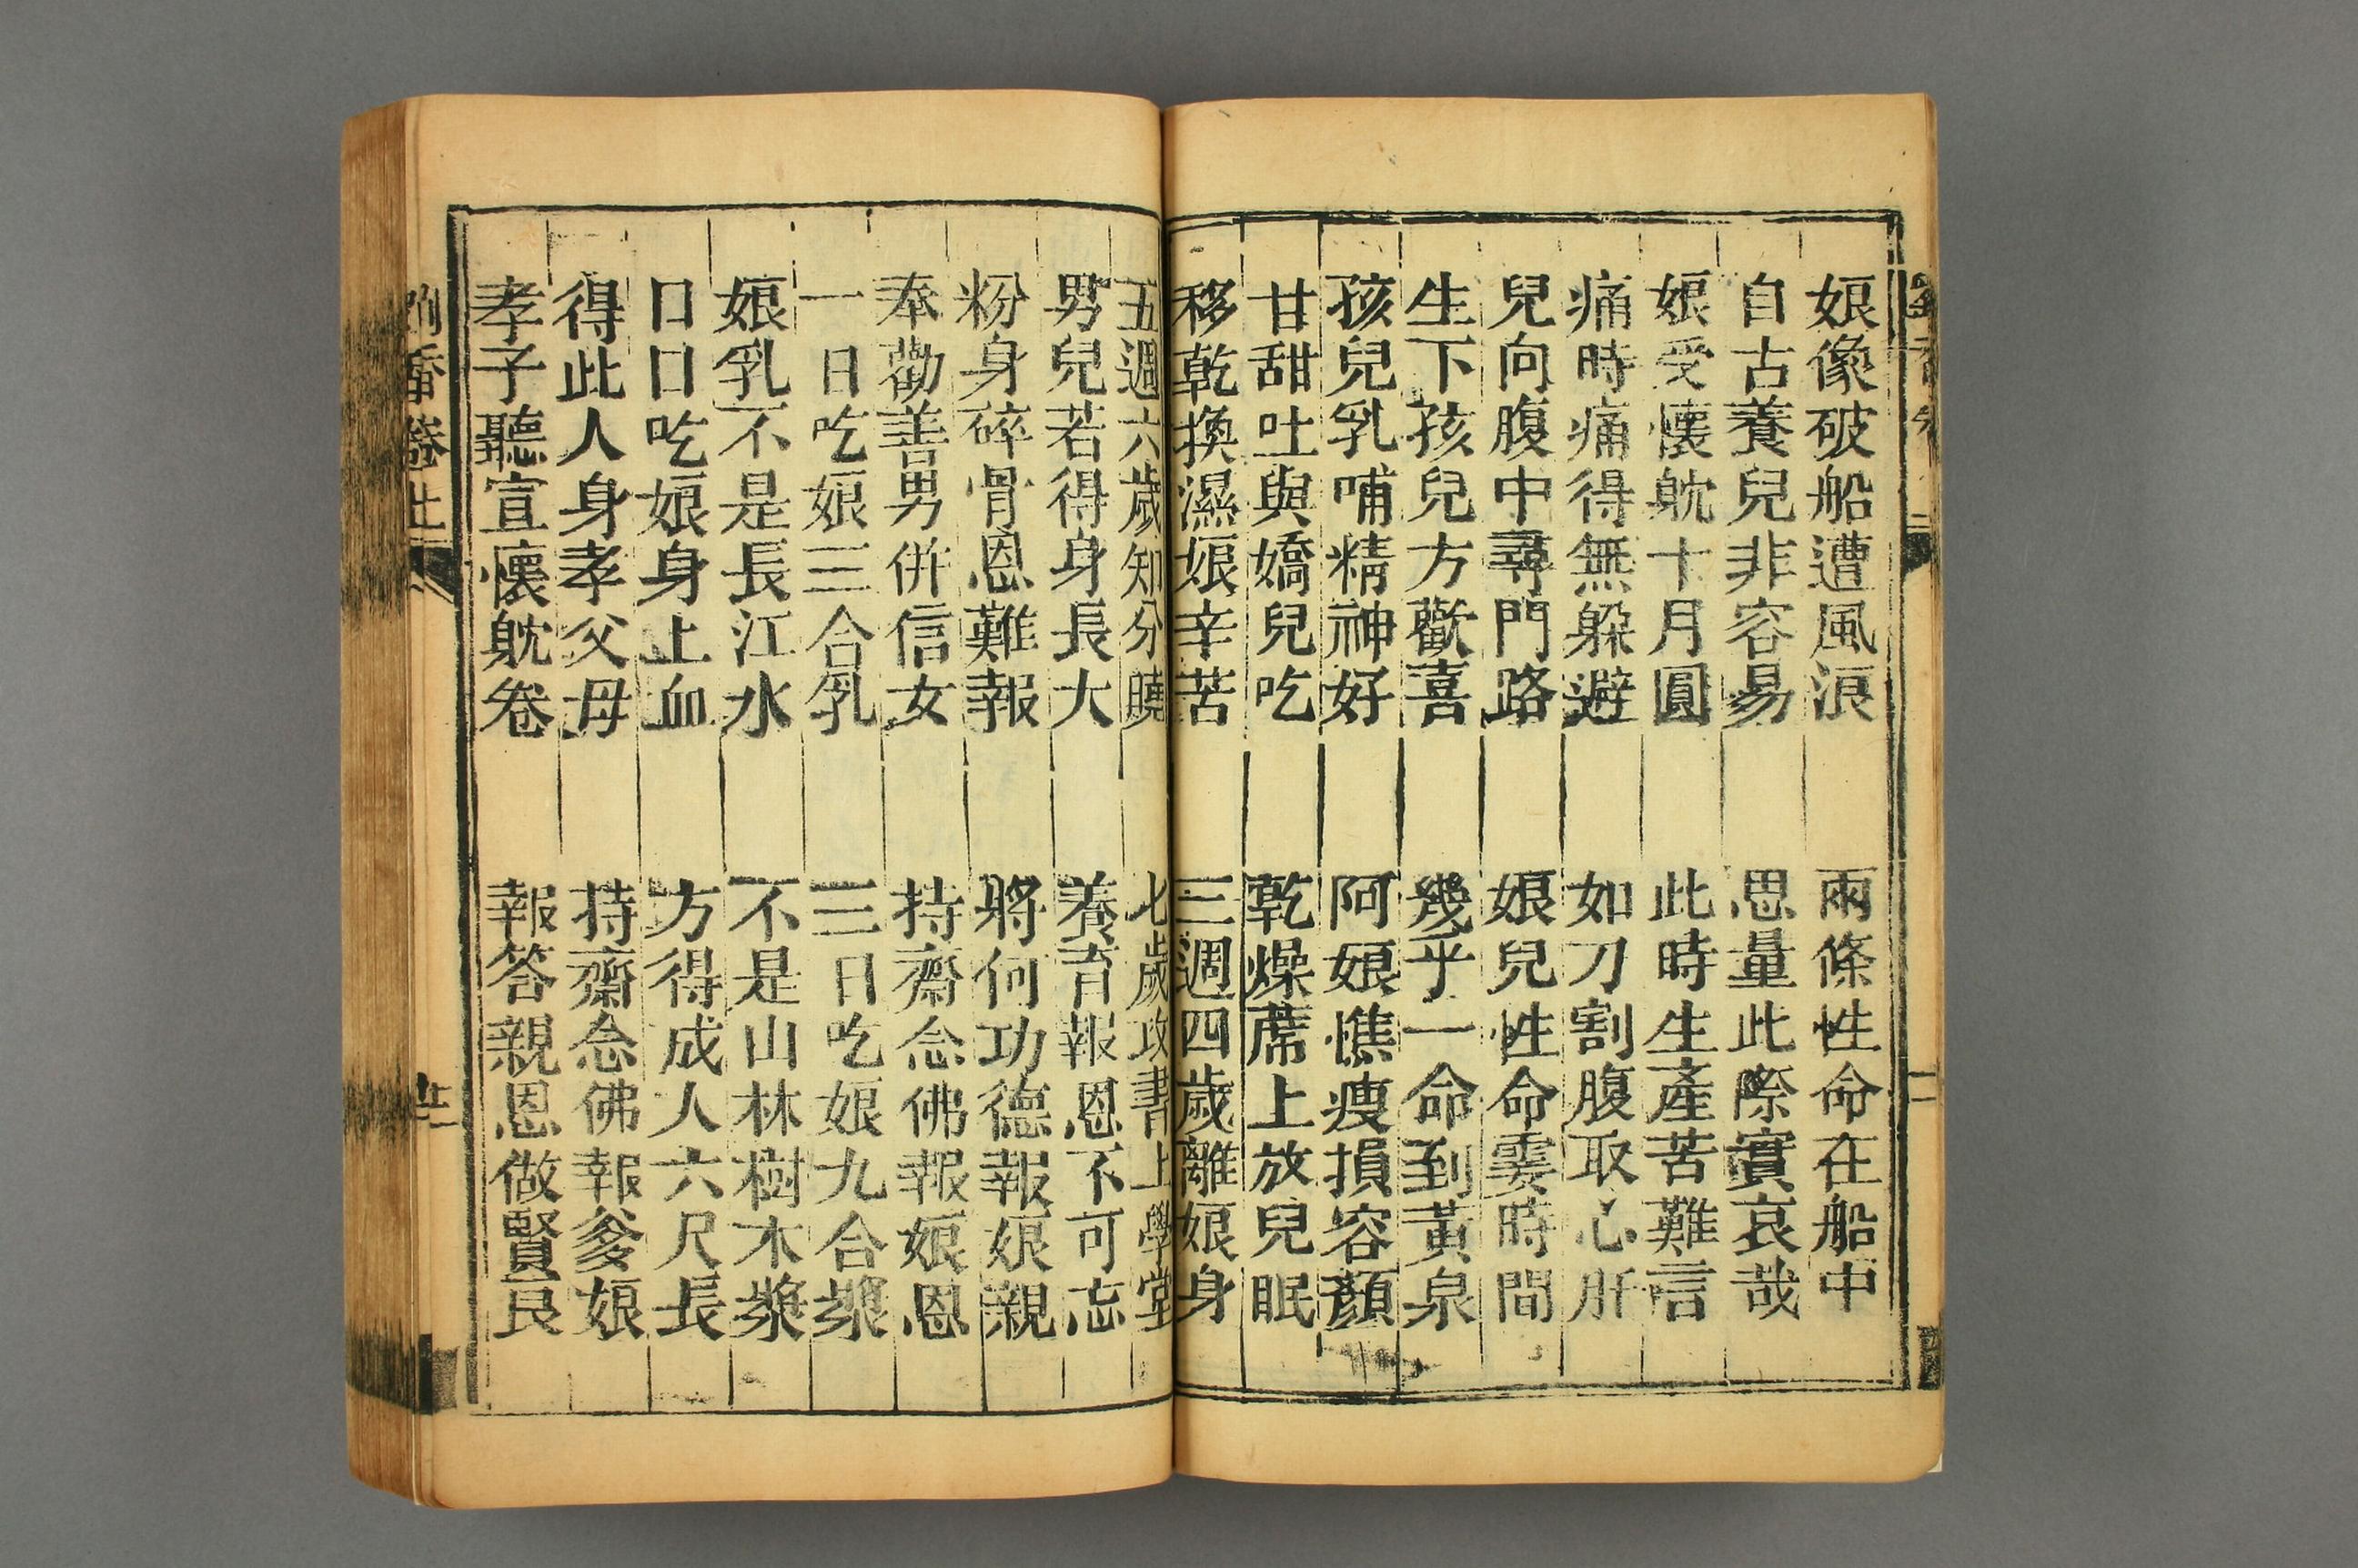 娘像破船遭風浪　兩條性命在船中
自古養兒非容易　思量此際實哀哉
娘受懷躭十月圓　此時生產苦難言
痛時痛得無躱避　如刀割腹取心肝
兒向腹中尋門路　娘兒性命霎時間
生下孩兒方歡喜　幾乎一命到黃泉
孩兒乳哺精神好　阿娘憔瘦損容顏
甘甜吐與嬌兒吃　乾燥蓆上放兒眠
移乾換濕娘辛苦　三週四歲離娘身
五週六歲知分曉　七歲攻書上學堂
男兒若得身長大　養育報恩不可忘
粉身碎骨恩難報　將何功德報娘親
奉勸善男併信女　持齋念佛報娘恩
一日吃娘三合乳　三日吃娘九合漿
娘乳不是長江水　不是山林樹木漿
口口吃娘身上血　方得成人六尺長
得此人身孝父母　持齋念佛報爹娘
孝子聽宣懷躭卷　報答親恩做賢良
劉香卷上